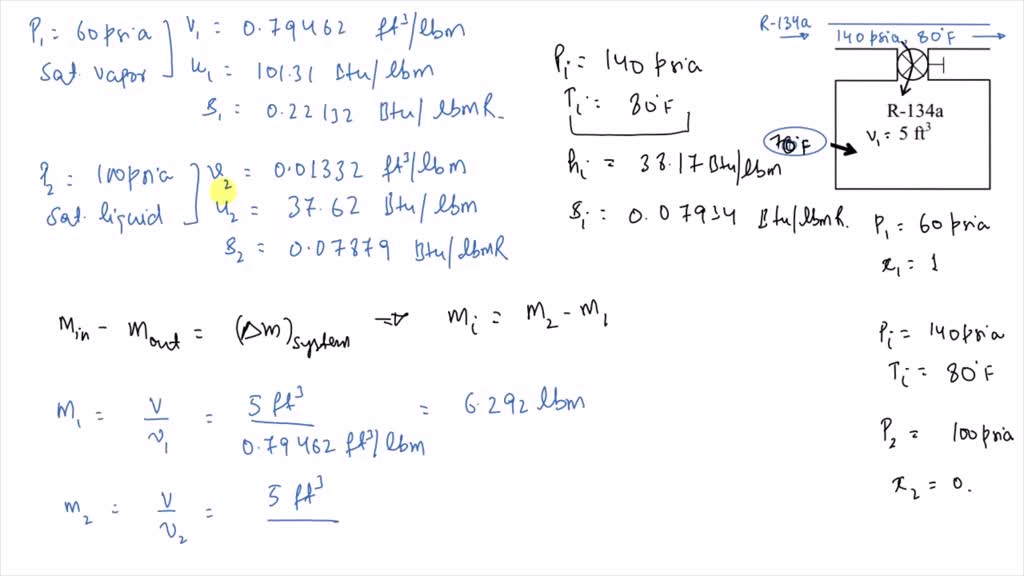 P₁ = 60 psia
Sat. vapor
v₁ = 0.79462 ft³/lbm
u₁ = 101.31 Btu/lbm
s₁ = 0.22132 Btu/lbmR.
P₂ = 100 psia
Sat. liquid
v₂ = 0.01332 ft³/lbm
u₂ = 37.62 Btu/lbm
s₂ = 0.07879 Btu/lbmR
Pᵢ = 140 psia
Tᵢ = 80°F
hᵢ = 38.17 Btu/lbm
sᵢ = 0.07934 Btu/lbmR.
R-134a
140 psia, 80°F
R-134a
v₁ = 5 ft³
P₁ = 60 psia
x₁ = 1
Pᵢ = 140 psia
Tᵢ = 80°F
P₂ = 100 psia
x₂ = 0.
Min - Mout = (Δm)system ⇒ mᵢ = m₂ - m₁
M₁ = V/v₁ = 5 ft³ / 0.79462 ft³/lbm = 6.292 lbm
m₂ = V/v₂ = 5 ft³